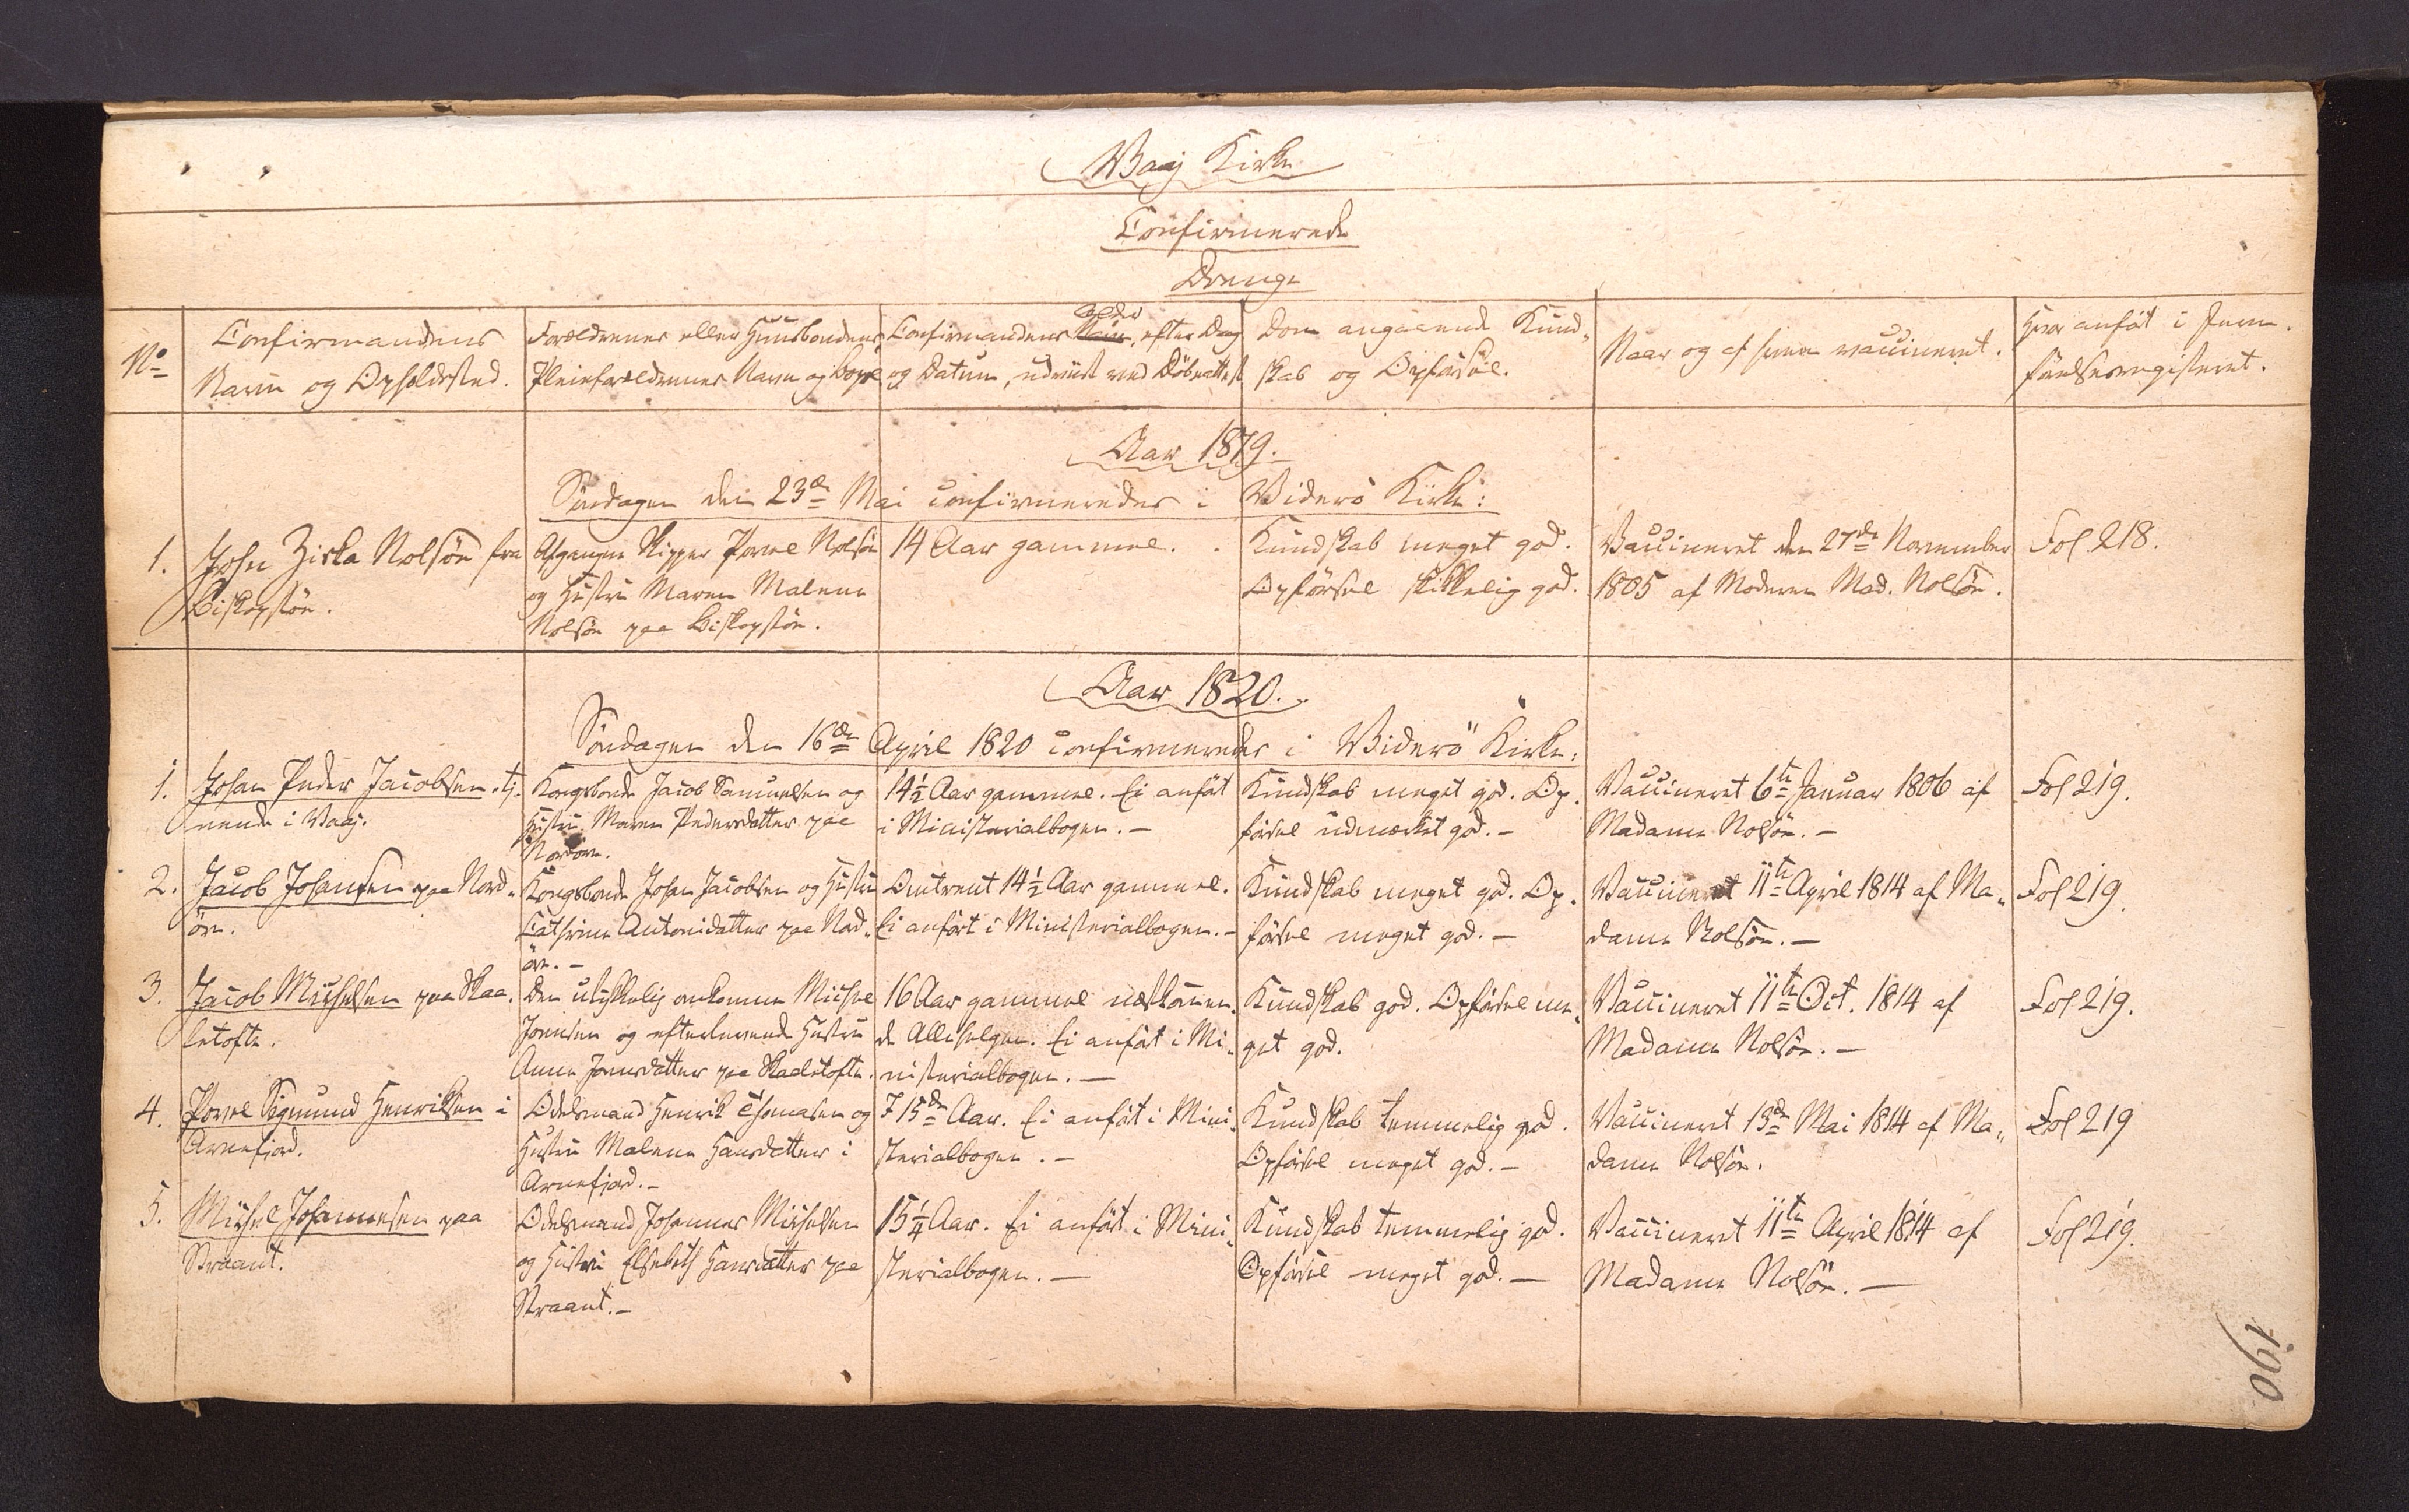 Waaj Kirke
Confirmerede
Drenge
No
Confirmandens
Navn og Opholdsted.
Forældrenes eller Huusbondens,
Pleieforældrenes Navn og Bopæl
Alder
Confirmandens, efter Dag
og Datum, udviist ved Döbeattest
Dom angaaende Kund-
skab og Opförsel.
Naar og af hvem vaccineret.
Hvor anfört i Jevn-
förelsesregisteret.
Aar 1819.
Söndagen den 23de Mai confirmeredes i Widerö Kirke:
1.
John Ziska Nolsöe fra
Biskopstöe.
Afgangne Skipper Povel Nolsöe
og Hustru Maren Malene
Nolsöe paa Biskopstöe.
14 Aar gammel.
Kundskab meget god.
Opförsel skikkelig god.
Vaccineret den 27de November
1805 af Moderen Mad. Nolsöe.
Fol 218.
Aar 1820.
Söndagen den 16de April 1820 confirmeredes i Widerö Kirke:
1.
Johan Peder Jacobsen tj-
nende i Vaaj.
Kongsbonde Jacob Samuelsen og
Hustru Maren Pedersdatter paa
Nordöre.
14½ Aar gammel. Ei anfört
i Ministerialbogen. —
Kundskab meget god. Op-
försel udmærket god. —
Vaccineret 6te Januar 1806 af
Madame Nolsöe. —
Fol 219.
2.
Jacob Johansen paa Nord-
öre.
Kongsbonde Johan Jacobsen og Hustru
Cathrine Antonidatter paa Nord-
öre. —
Omtrent 14½ Aar gammel.
Ei anfört i Ministerialbogen. —
Kundskab meget god. Op-
försel meget god. —
Vaccineret 11te April 1814 af Ma-
dame Nolsöe. —
Fol 219.
3.
Jacob Michelsen paa Skaa-
letofte.
Den ulykkelig omkomne Michel
Joensen og efterlevende Hustru
Anne Joensdatter paa Skaaletofte.
16 Aar gammel næstkommen-
de Allehelgen. Ei anfört i Mi-
nisterialbogen. —
Kundskab god. Opförsel me-
get god.
Vaccineret 11te Oct. 1814 af
Madame Nolsöe. —
Fol 219.
4.
Povel Sigmund Henriksen i
Arnefjord.
Odelsmand Henrik Thomasen og
Hustru Malene Hansdatter i
Arnefjord. —
I 15de Aar. Ei anfört i Mini-
sterialbogen. —
Kundskab temmelig god.
Opförsel meget god. —
Vaccineret 13de Mai 1814 af Ma-
dame Nolsöe.
Fol 219
5.
Michel Johannesen paa
Straant.
Odelsmand Johannes Michelsen
og Hustru Elsebeth Hansdatter paa
Straant. —
15¼ Aar. Ei anfört i Mini-
sterialbogen. —
Kundskab temmelig god.
Opförsel meget god. —
Vaccineret 11te April 1814 af
Madame Nolsöe. —
Fol 219.
190